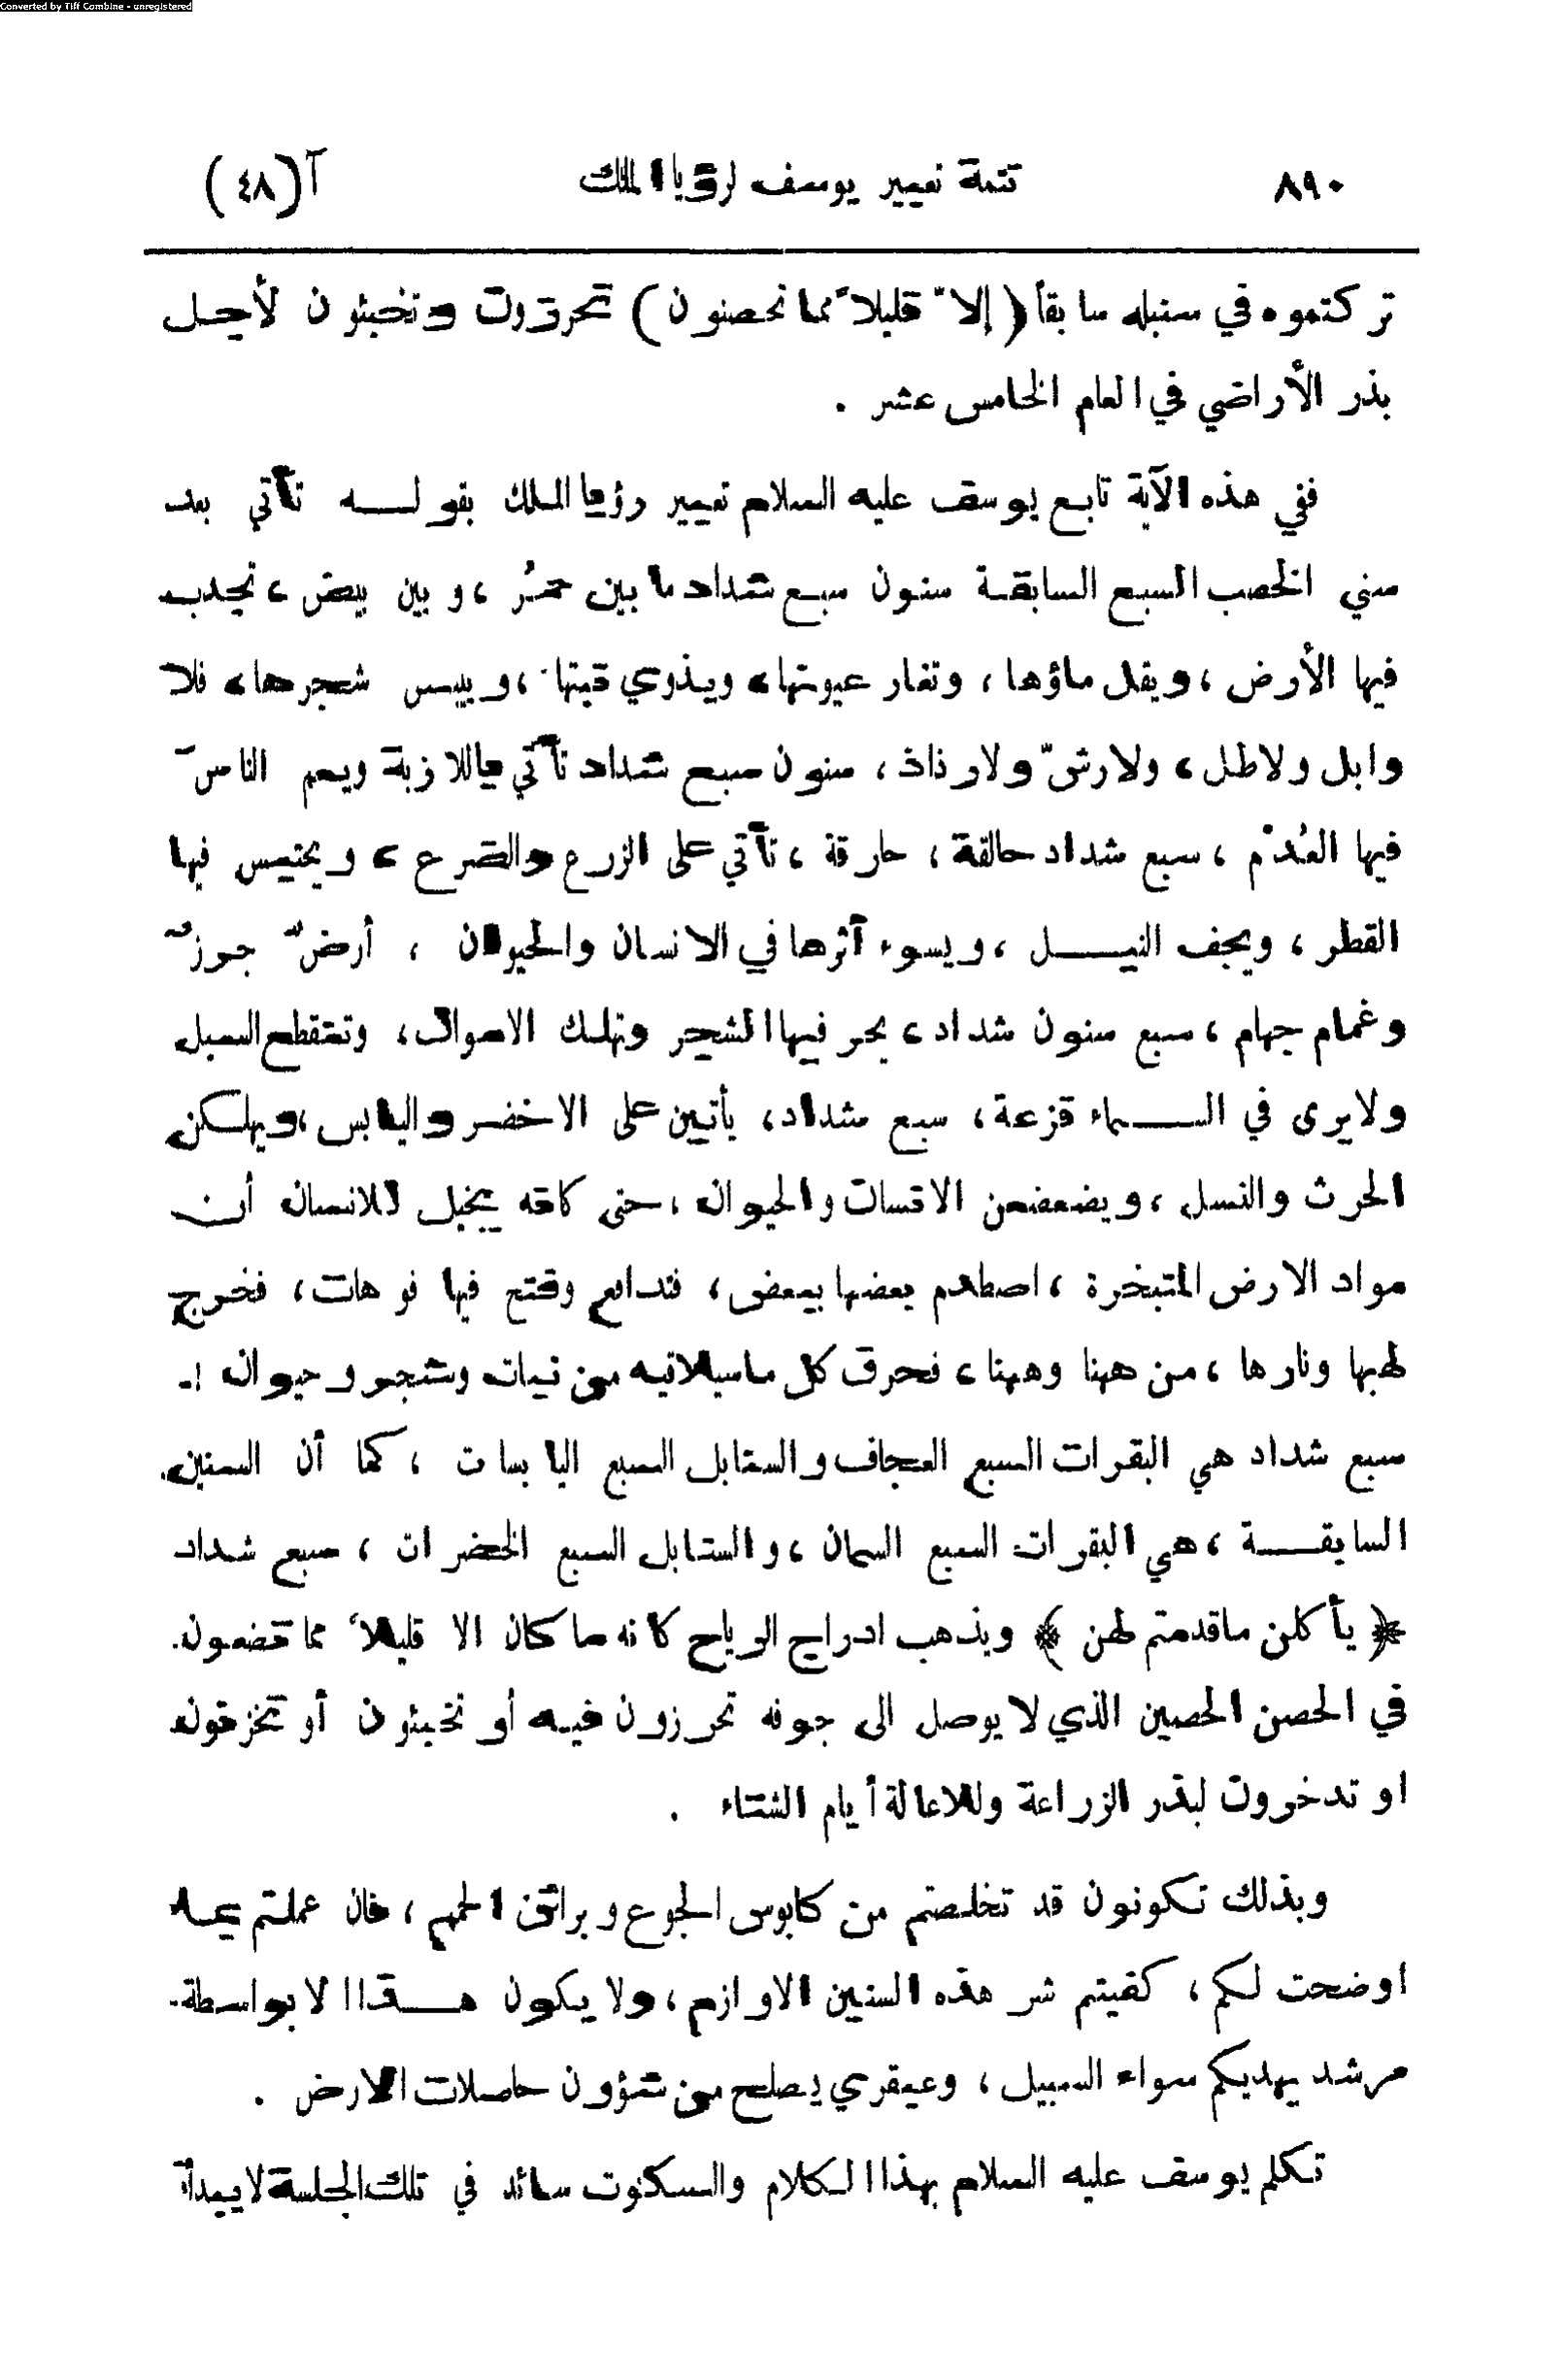 Converted by Tiff Combine - unregistered
٨٩٠ تتمة تعبير يوسف لرؤيا الملك آ (٤٨)
تركتموه في سنبله سابقاً ( إلاّ قليلاً مما تحصنون ) تحرزون وتخبئون لأجل
بذر الأراضي في العام الخامس عشر .
ففي هذه الآية تابع يوسف عليه السلام تعبير رؤيا الملك بقولـــه تأتي بعد
سني الخصب السبع السابقة سنون سبع شداد ما بين حمُر ، وبين بيض ، تجدب
فيها الأرض ، ويقل ماؤها ، وتغار عيونها ، ويذوي نبتها ، وييبس شجرها ، فلا
وابل ولا طل ، ولا رشّ ولا رذاذ ، سنون سبع شداد تأتي باللازبة ويعم الناسَ
فيها العُدْم ، سبع شداد حالقة ، حارقة ، تأتي على الزرع والضرع ، ويحتبس فيها
القطر ، ويجف النيـــل ، ويسوء أثرها في الانسان والحيوان ، أرضٌ جرزٌ
وغمام جهام ، سبع سنون شداد ، يحر فيها الشجر وتهلك الاموال ، وتتقطع السبل
ولا يرى في الســـماء قزعة ، سبع شداد ، يأتين على الاخضر واليابس ، ويهلكن
الحرث والنسل ، ويضعضعن الانسان والحيوان ، حتى كانه يخيل للانسان أن
مواد الارض المتبخرة ، اصطدم بعضها ببعض ، فتدافع وفتح فيها فوهات ، فخرج
لهبها ونارها ، من ههنا وههنا ، فحرق كل ما سيلاقيه من نبات وشجر وحيوان !.
سبع شداد هي البقرات السبع العجاف والسنابل السبع اليابسات ، كما أن السنين
السابقـــة ، هي البقرات السبع السمان ، والسنابل السبع الخضرات ، سبع شداد
﴿ يأكلن ما قدمتم لهن ﴾ ويذهب ادراج الرياح كانه ما كان الا قليلاً مما تضعون
في الحصن الحصين الذي لا يوصل الى جوفه تحرزون فيه أو تخبئون أو تخزنون
او تدخرون لبذر الزراعة وللاعالة أيام الشتاء .
وبذلك تكونون قد تخلصتم من كابوس الجوع وبراثن الهم ، فان عملتم بما
اوضحت لكم ، كفيتم شر هذه السنين الاوازم ، ولا يكون هـــذا الا بواسطة
مرشد يهديكم سواء السبيل ، وعبقري يصلح من شؤون حاصلات الارض .
تكلم يوسف عليه السلام بهذا الكلام والسكوت سائد في تلك الجلسة لا يبدأ